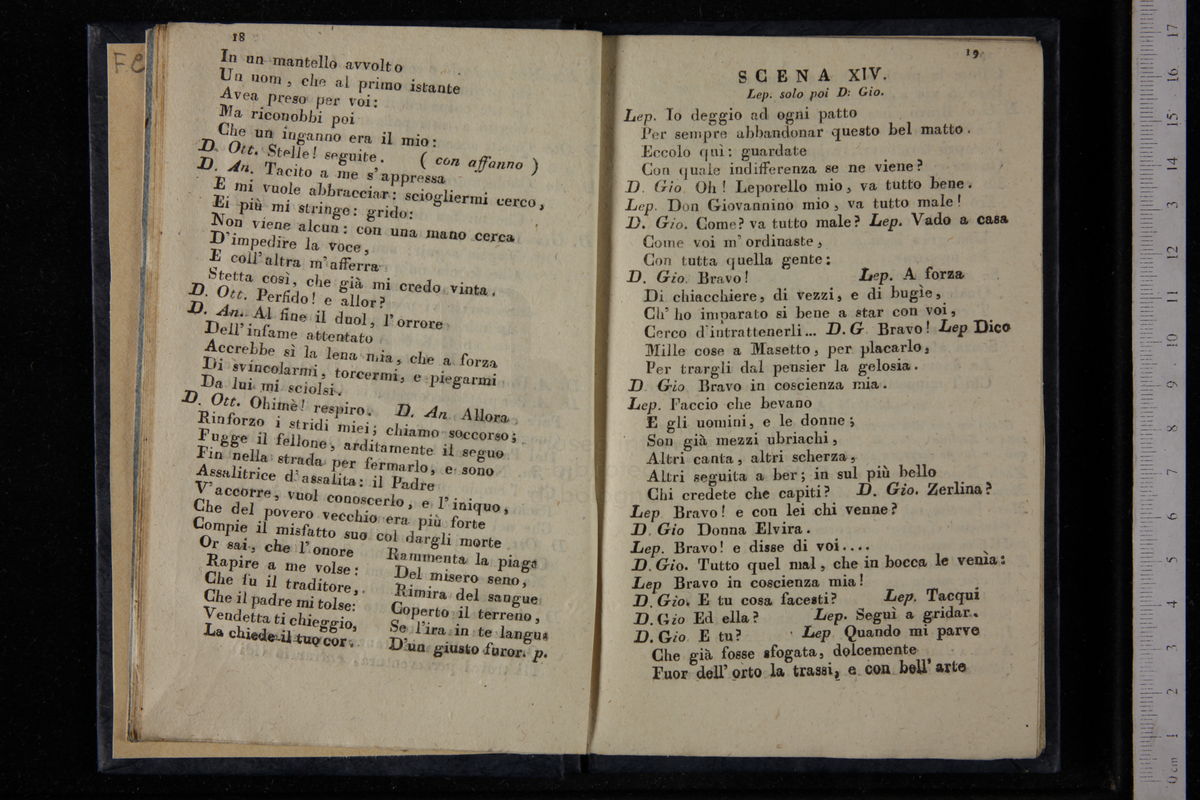 Fe
18
In un mantello avvolto
Un uom, che al primo istante
Avea preso per voi:
Ma riconobbi poi
Che un inganno era il mio:
D. Ott. Stelle! seguite. ( con affanno )
D. An. Tacito a me s'appressa
E mi vuole abbracciar: sciogliermi cerco,
Ei più mi stringe: grido:
Non viene alcun: con una mano cerca
D'impedire la voce,
E coll'altra m'afferra
Stetta così, che già mi credo vinta.
D. Ott. Perfido! e allor?
D. An. Al fine il duol, l'orrore
Dell'infame attentato
Accrebbe sì la lena mia, che a forza
Di svincolarmi, torcermi, e piegarmi
Da lui mi sciolsi.
D. Ott. Ohimè! respiro. D. An Allora
Rinforzo i stridi miei; chiamo soccorso;
Fugge il fellone, arditamente il seguo
Fin nella strada per fermarlo, e sono
Assalitrice d'assalita: il Padre
V'accorre, vuol conoscerlo, e l'iniquo,
Che del povero vecchio era più forte
Compie il misfatto suo col dargli morte.
Or sai, che l'onore
Rapire a me volse:
Che fu il traditore,
Che il padre mi tolse:
Vendetta ti chieggio,
La chiede il tuo cor.
Rammenta la piaga
Del misero seno,
Rimira del sangue
Coperto il terreno,
Se l'ira in te langue
D'un giusto furor. p.
19
SCENA XIV.
Lep. solo poi D: Gio.
Lep. Io deggio ad ogni patto
Per sempre abbandonar questo bel matto.
Eccolo quì: guardate
Con quale indifferenza se ne viene?
D. Gio Oh! Leporello mio, va tutto bene.
Lep. Don Giovannino mio, va tutto male!
D. Gio. Come? va tutto male? Lep. Vado a casa
Come voi m'ordinaste,
Con tutta quella gente:
D. Gio. Bravo! Lep. A forza
Di chiacchiere, di vezzi, e di bugìe,
Ch'ho imparato si bene a star con voi,
Cerco d'intrattenerli... D. G. Bravo! Lep Dico
Mille cose a Masetto, per placarlo,
Per trargli dal pensier la gelosia.
D. Gio Bravo in coscienza mia.
Lep. Faccio che bevano
E gli uomini, e le donne;
Son già mezzi ubriachi,
Altri canta, altri scherza,
Altri seguita a ber; in sul più bello
Chi credete che capiti? D. Gio. Zerlina?
Lep Bravo! e con lei chi venne?
D. Gio Donna Elvira.
Lep. Bravo! e disse di voi....
D. Gio. Tutto quel mal, che in bocca le venìa:
Lep Bravo in coscienza mia!
D. Gio. E tu cosa facesti? Lep. Tacqui
D. Gio Ed ella? Lep. Seguì a gridar.
D. Gio E tu? Lep Quando mi parve
Che già fosse sfogata, dolcemente
Fuor dell'orto la trassi, e con bell'arte
0 cm 1 2 3 4 5 6 7 8 9 10 11 12 13 14 15 16 17